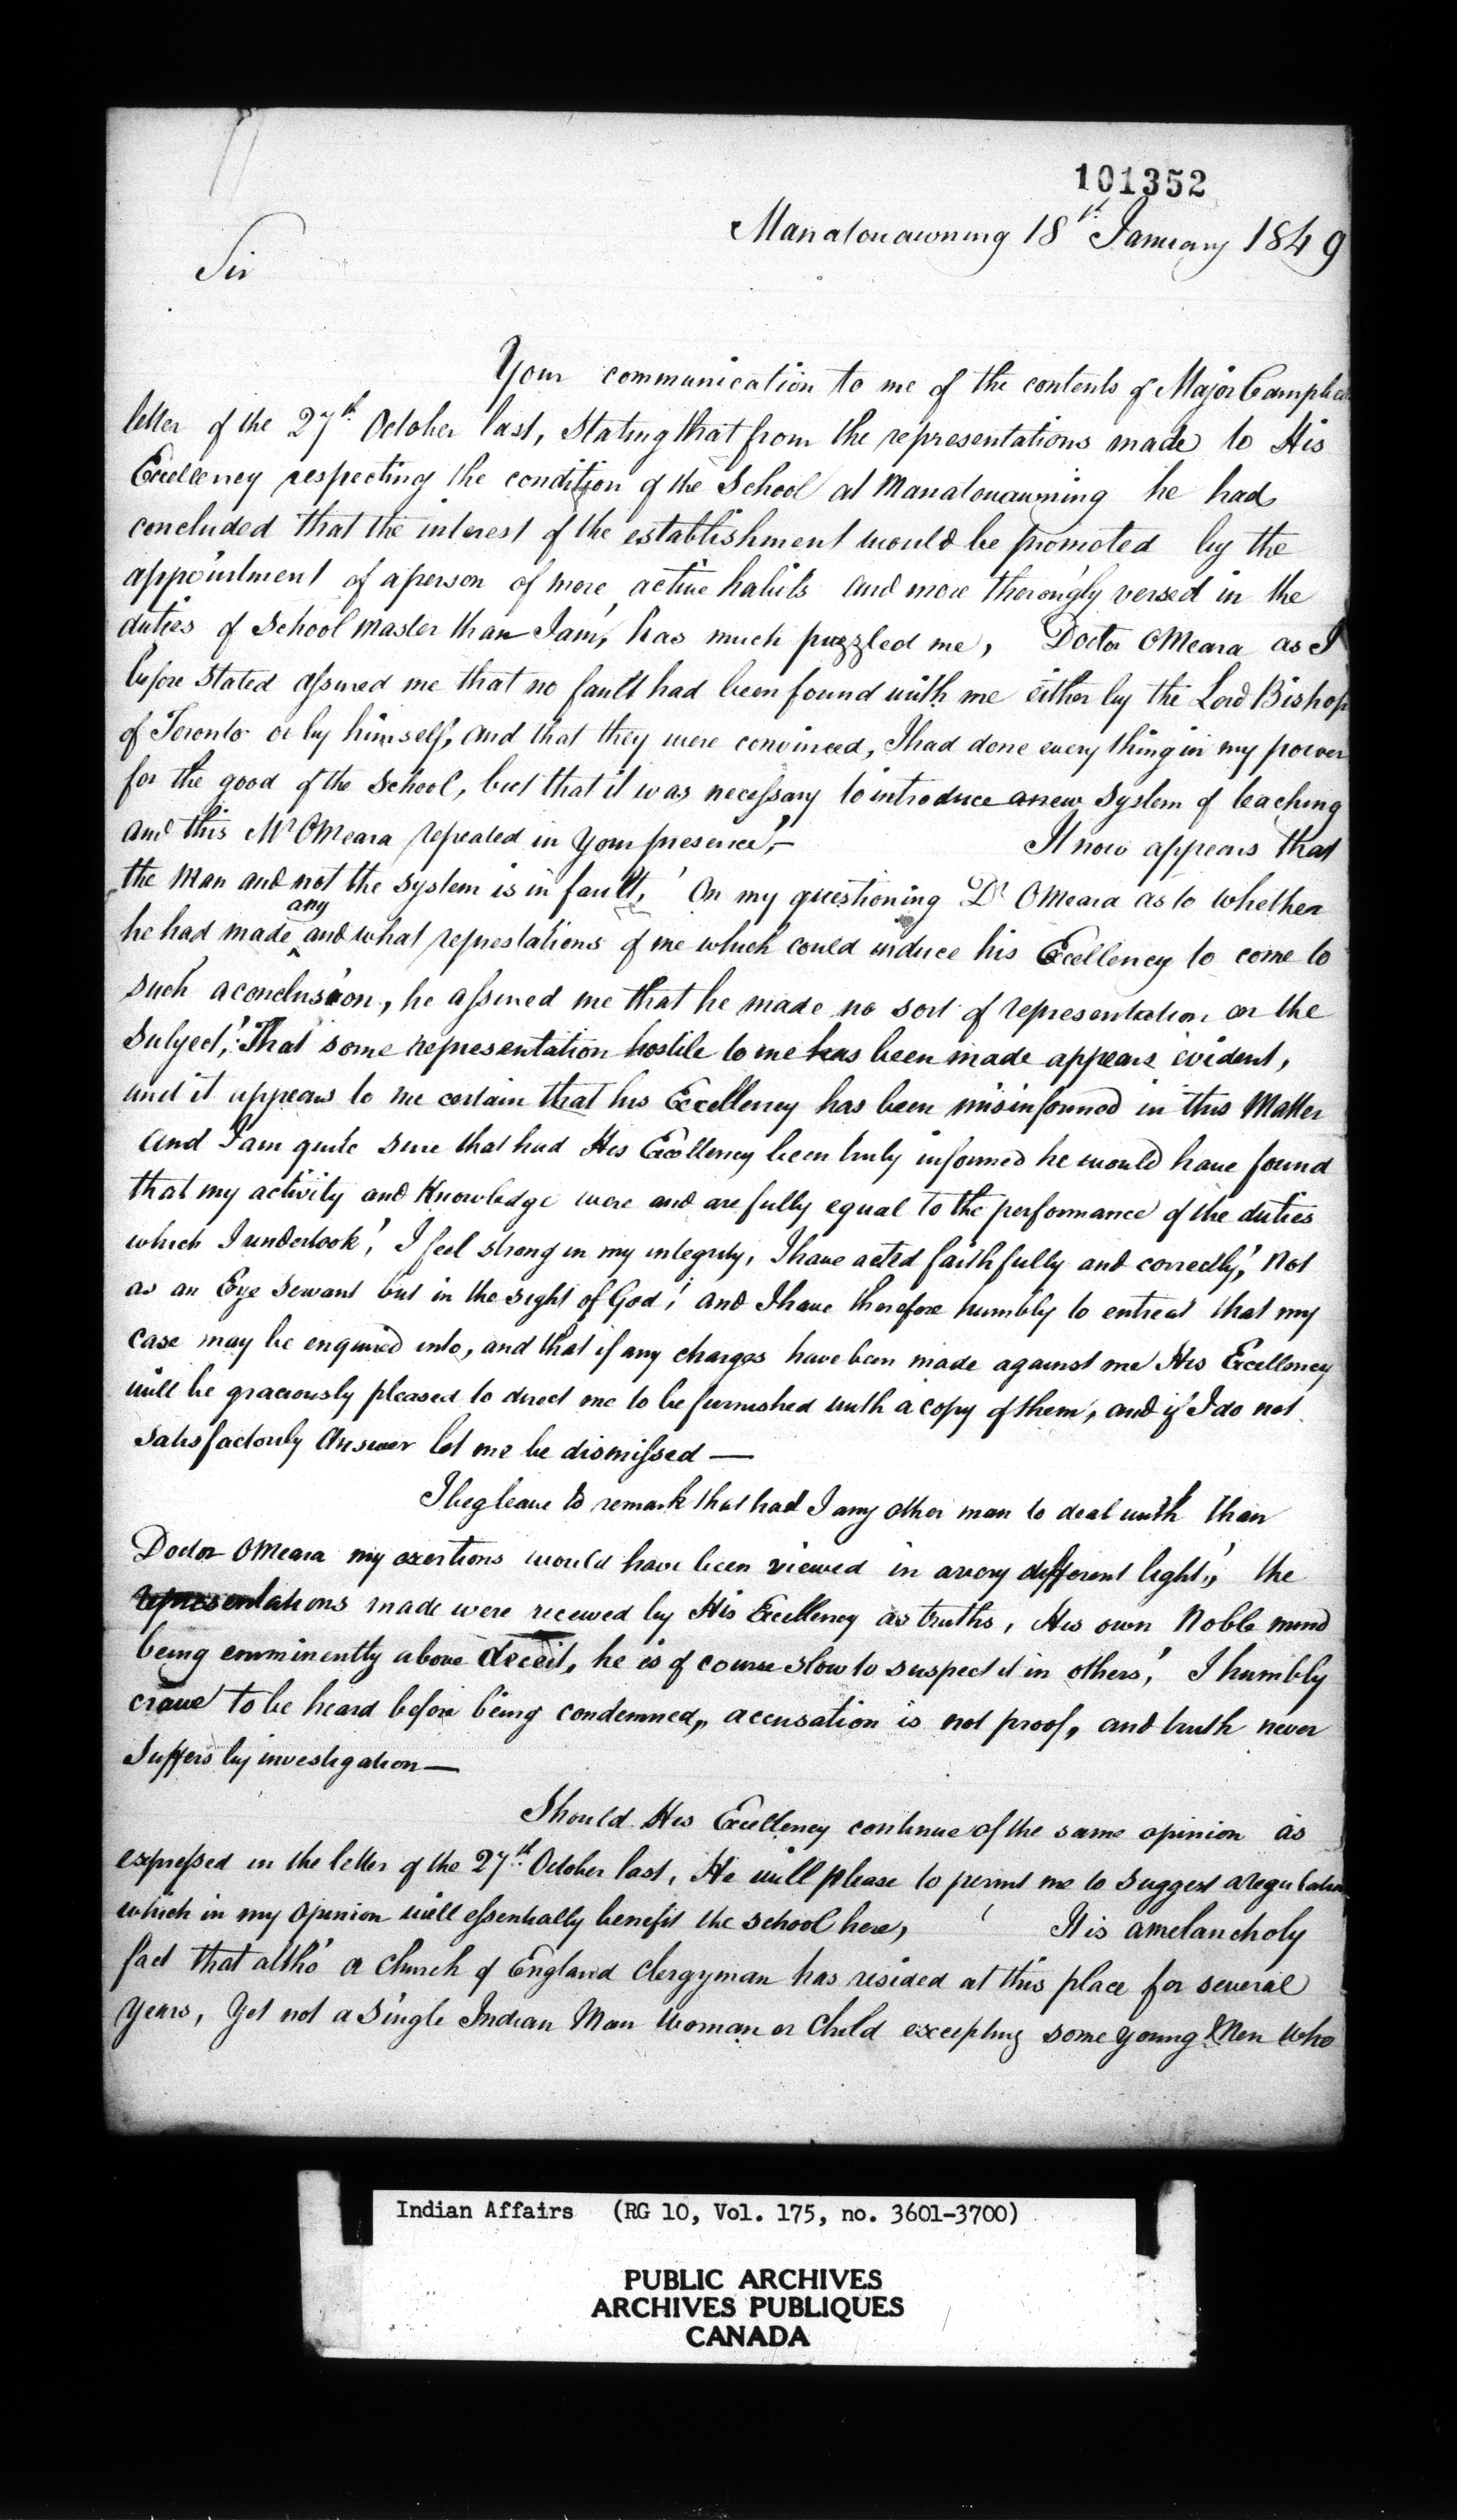 101352
Manatouawning 18th January 1849
Sir
Your communication to me of the contents of Major Campbells
letter of the 27th October last, Stating that from the representations made to His
Excellency respecting the condition of the School at Manatouawning he had
concluded that the interest of the establishment would be promoted by the
appointment of a person of more active habits and more thorougly versed in the
duties of School Master than I am, has much puzzled me, Doctor OMeara as I
before Stated assured me that no fault had been found with me either by the Lord Bishop
of Toronto or by himself, and that they were convinced, I had done every thing in my power
for the good of the School, but that it was necessary to introduce a new System of teaching
and this Mr OMeara repeated in Your presence,! —
It now appears that
the Man and not the System is in fault,! On my questioning Dr OMeara as to whether
he had made any and what represtations of me which could induce his Excellency to come to
such a conclusion, he assured me that he made no sort of representation on the
Subject,! That some representation hostile to me has been made appears evident,
and it appears to me certain that his Excellency has been misinformed in this Matter
And I am quite sure that had His Excellency been truly informed he would have found
that my activity and Knowledge were and are fully equal to the performance of the duties
which I undertook,! I feel strong in my integrity, I have acted faithfully and correctly,! Not
as an Eye Servant but in the sight of God,! and I have therefore humbly to entreat that my
case may be enquired into, and that if any charges have been made against me His Excellency
will be graciously pleased to direct me to be furnished with a copy of them, and if I do not
Satisfactorily Answer let me be dismissed —
I beg leave to remark that had I any other man to deal with than
Doctor OMeara my exertions would have been viewed in a very different light,! the
representations made were received by His Excellency as truths, His own Noble mind
being emminently above deceit, he is of course slow to suspect it in others,! I humbly
crave to be heard before being condemned,, accusation is not proof, and truth never
Suffers by investigation —
Should His Excellency continue of the same opinion as
expressed in the letter of the 27th October last, He will please to permit me to suggest a regulation
which in my opinion will essentially benefit the school here,
It is a melancholy
fact that altho' a Church of England Clergyman has resided at this place for several
Years, Yet not a Single Indian Man Woman or Child excepting some young Men Who
Indian Affairs (RG 10, Vol. 175, no. 3601-3700)
PUBLIC ARCHIVES
ARCHIVES PUBLIQUES
CANADA